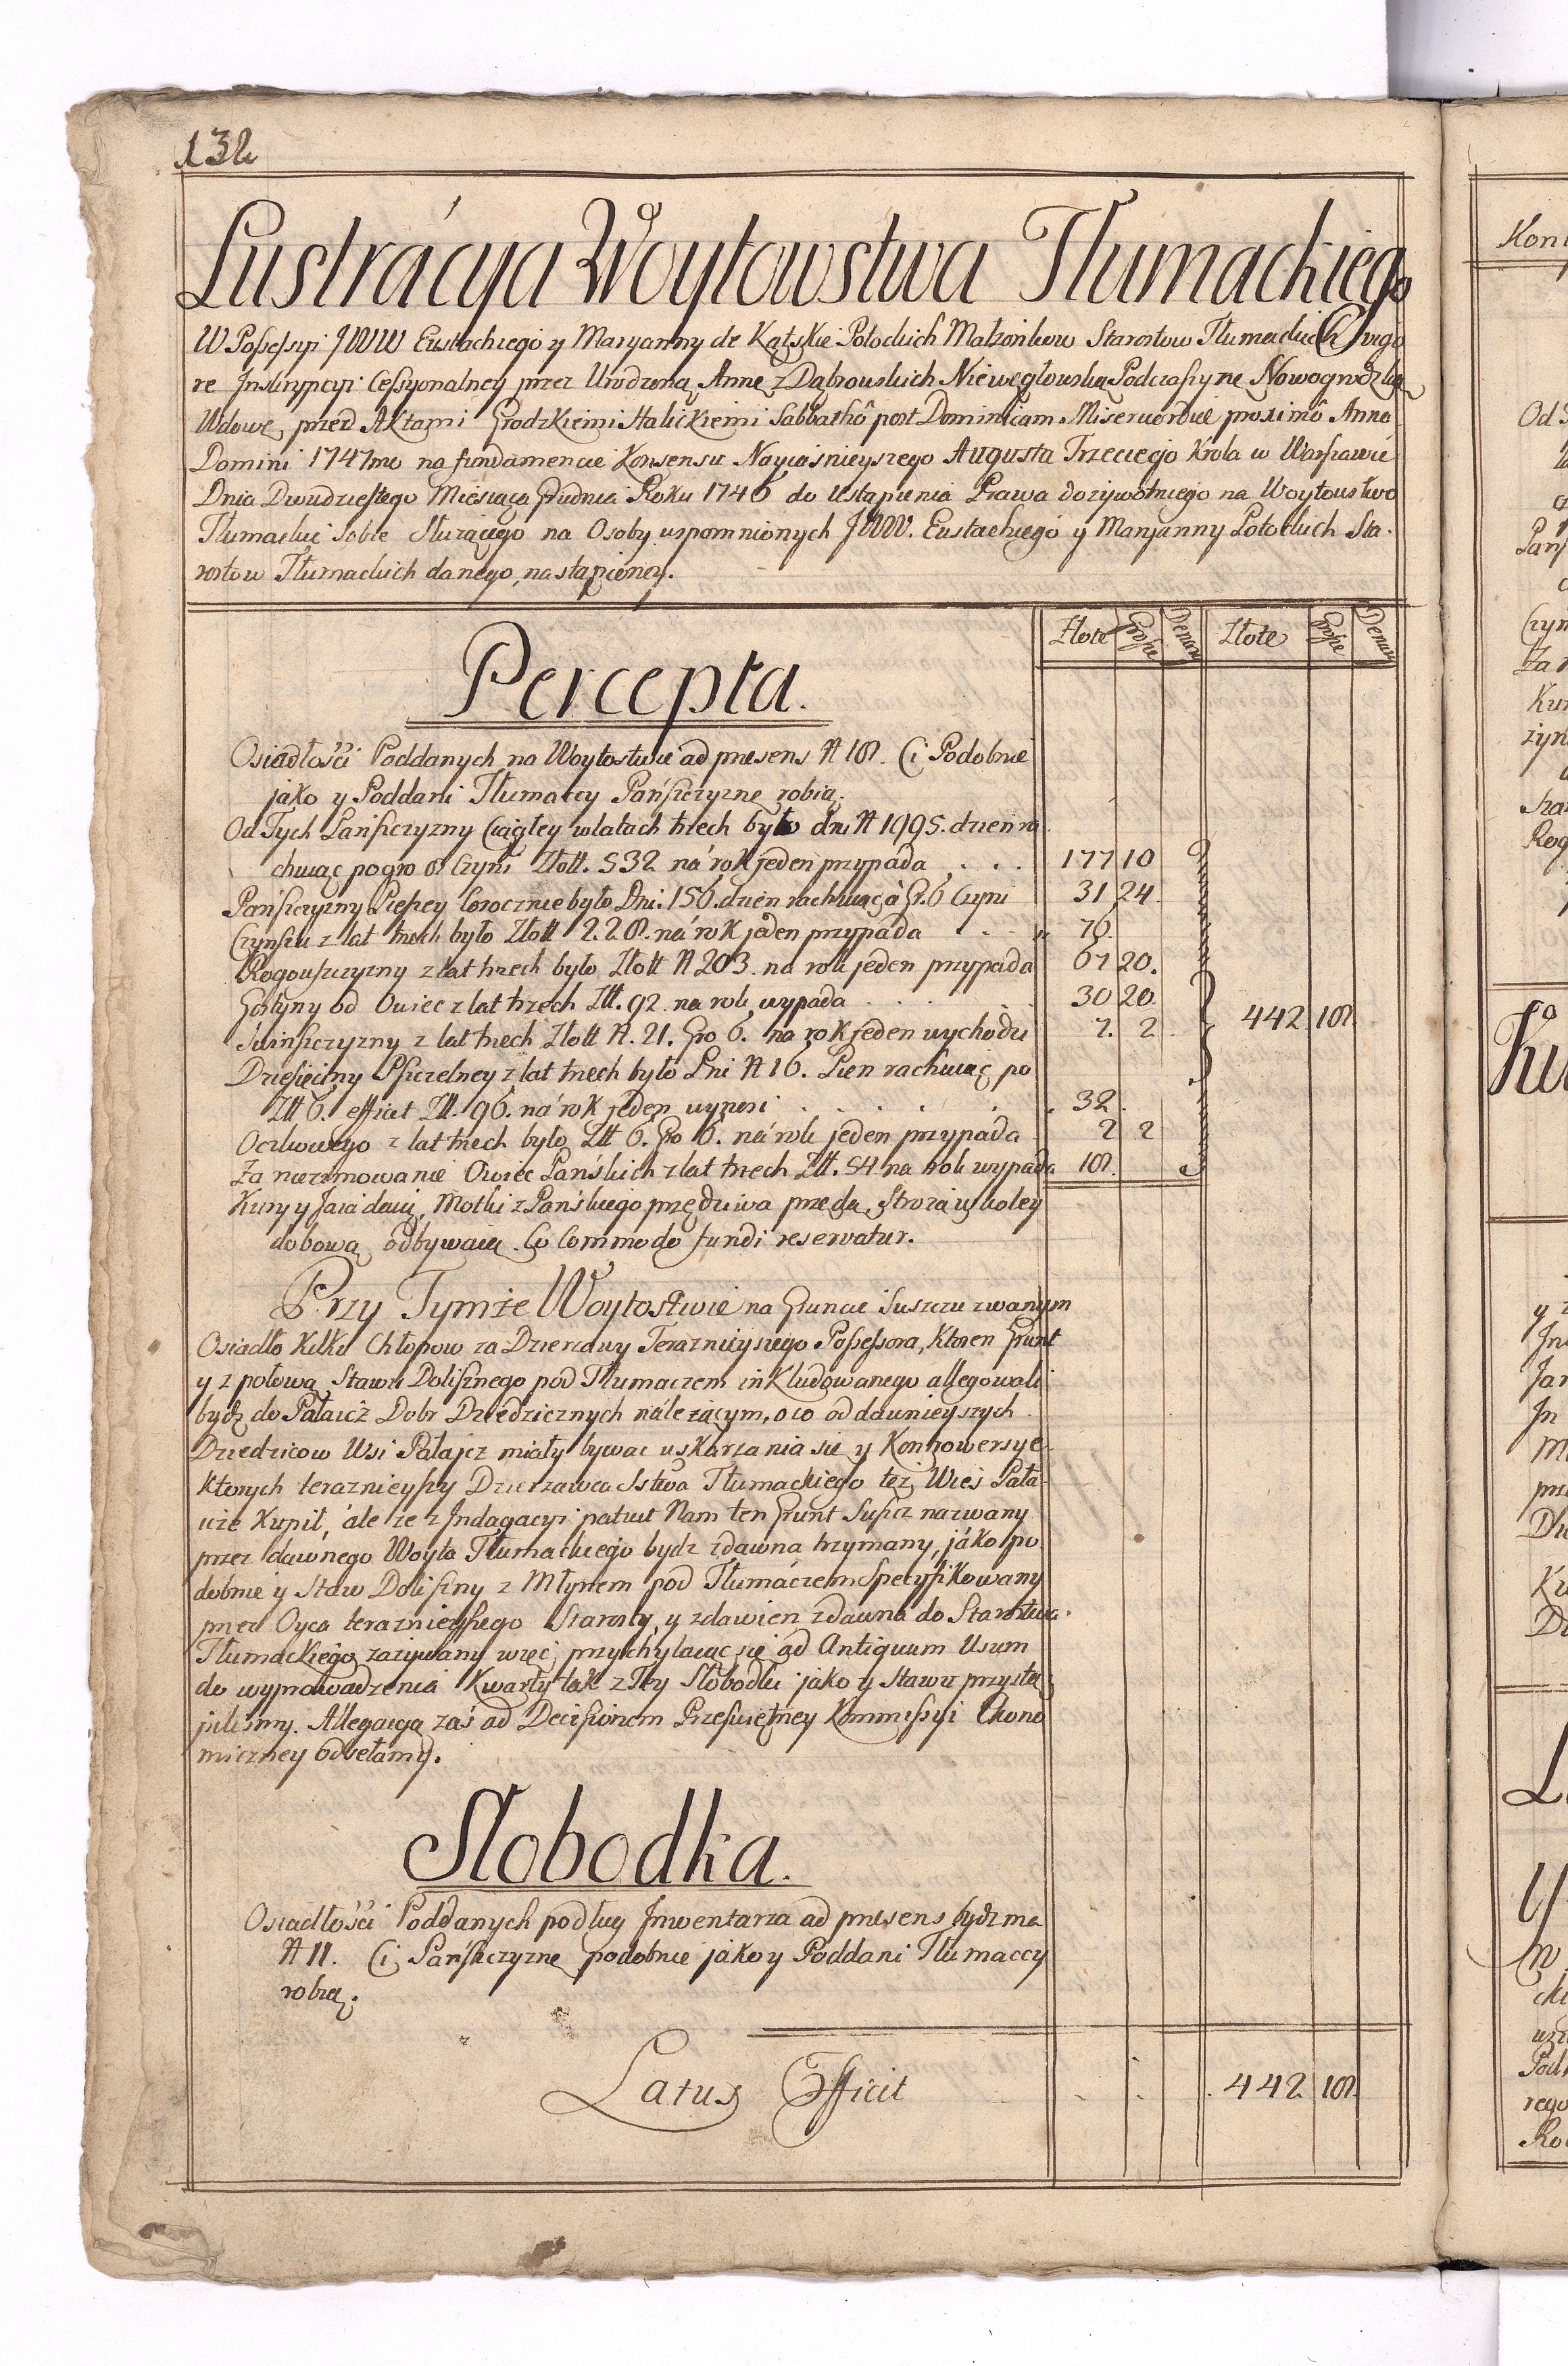 132
Lustrácya Woytowstwa Tłumackiego
W Possessyi JWW Eustachiego y Maryanny de Kątskie Potockich Małzonkow Starostow Tłumackich Vigo
re Inskrypcyi Cessyonalney przez Urodzoną Annę z Dąbrowskich Niewęgłowską Podczaszynę Nowogrodzką
Wdowę, przed Aktami Grodzkiemi Halickiemi Sabbathô post Dominicam Misericordiæ proximô Anno
Domini 1747mo na fundamencie Konsensu Nayiaśnieyszego Augusta Trzeciego Krola w Warszawie
Dnia Dwudziestego Miesiąca Grudnia Roku 1746 do Ustąpienia Prawa dozywotniego na Woytowstwo
Tłumackie sobie służącego na Osoby wspomnionych JWW. Eustachiego y Maryanny Potockich Sta-
rostow Tłumackich danego, nastąpioney.
Złote Grosze Denary Złote Grosze Denary
Percepta.
Osiadłości Poddanych na Woytostwie ad præsens N 18. Ci Podobnie
jako y Poddani Tłumaccy Pańszczyznę robią.
Od Tych Pańszczyzny Ciągłey w latach trzech było dni N 1995. dzien ra
chuiąc po gro 8 Czyni Złott. 532 ná rok jeden przypada . . . 177 10
Pańszczyzny Pieszey Corocznie było Dni. 156. dzien rachuiąc à Gr. 6 Czyni 31 24
Czynszu z lat trzech było Złott 228. ná rok jeden przypada . . . 76.
Rogowszczyzny z lat trzech było Złott N 203. na rok jeden przypada 67 20.
Gostyny od Owiec z lat trzech Złł. 92. na rok wypada . . . . 30 20
Świńszczyzny z lat trzech Złott N. 21. Gro 6. na rok jeden wychodzi 7. 2 442 18
Dziesięciny Pszczelney z lat trzech było Pni N 16. Pien rachuiąc po
Złł 6. efficit Złł. 96. ná rok jeden wynosi . . . . . 32.
Oczkowego z lat trzech było Złł 6. Gro 6. ná rok jeden przypada 2 2
Za nieezimowanie Owiec Pańskich z lat trzech Złł. 54 na rok wypada 18.
Kury y Jaia daią, Motki z Pańskiego przędziwa przędą, Stroza w koley
dobową odbywaią. Co Commodo fundi reservatur.
Przy Tymże Woytostwie na Gruncie Suszcz zwanym
Osiadło Kilku Chłopow za Dzierzawy Teraznieyszego Possessora, Ktoren Grunt
y z połową Stawu Dolisznego pod Tłumaczem inkludowanego allegowali
bydz do Pałaicz Dobr Dziedzicznych należącym, o co od dawnieyszych
Dziedzicow Wsi Pałajcz miały bywac uskarzania się y Kontrowersye
Ktorych teraznieyszy Dzierzawca Sstwa Tłumackiego też Wieś Pała-
icze Kupił, ále ze z Indagacyi patuit Nam ten Grunt Suszcz nazwany
przez dawnego Woyta Tłumackiego bydz zdawna trzymany, jáko po
dobnie y Staw Doliszny z Młynem pod Tłumáczem Specyfikowany
przez Oyca teraznieyszego Starosty, y zdawien zdawna do Starostwa
Tłumackiego zazywany więc, przychylaiąc się ad Antiquum Usum
do wyprowadzenia Kwarty tak z Tey Słobodki jako y Stawu przystą
piliśmy. Allegacyą zaś ad Decisionem Prześwietney Kommissyi Ekono
miczney odsełamy.
Slobodka.
Osiadłości Poddanych podług Inwentarza ad præsens bydz ma
N 11. Ci Pańszczyznę podobnie jako y Poddani Tłumaccy
robią.
Latus Efficit . . . 442 18